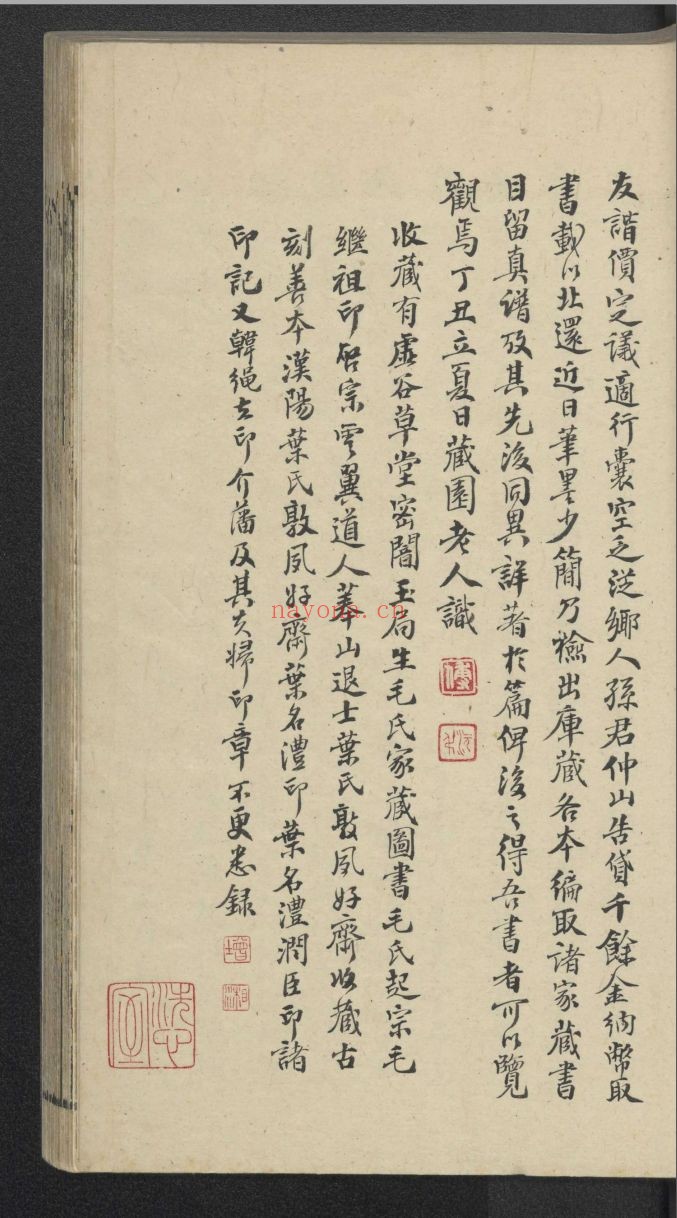 友諧價定議適行囊空乏從鄉人孫君仲山告貸千餘金納幣取
書載以北還近日筆墨少簡乃檢出庫藏各本編取諸家藏書
目留真譜攷其先後同異詳著於篇俾後之得吾書者可以覽
觀焉丁丑立夏日藏園老人識
傅
沅
收藏有虛谷草堂密闇玉局生毛氏家藏圖書毛氏起宗毛
繼祖印啓宗雩翼道人華山退士葉氏敦夙好齋收藏古
刻善本漢陽葉氏敦夙好齋葉名澧印葉名澧潤臣印諸
印記又韓繩夫印介藩及其夫婦印章不更悉錄
增
湘
nayona.cn